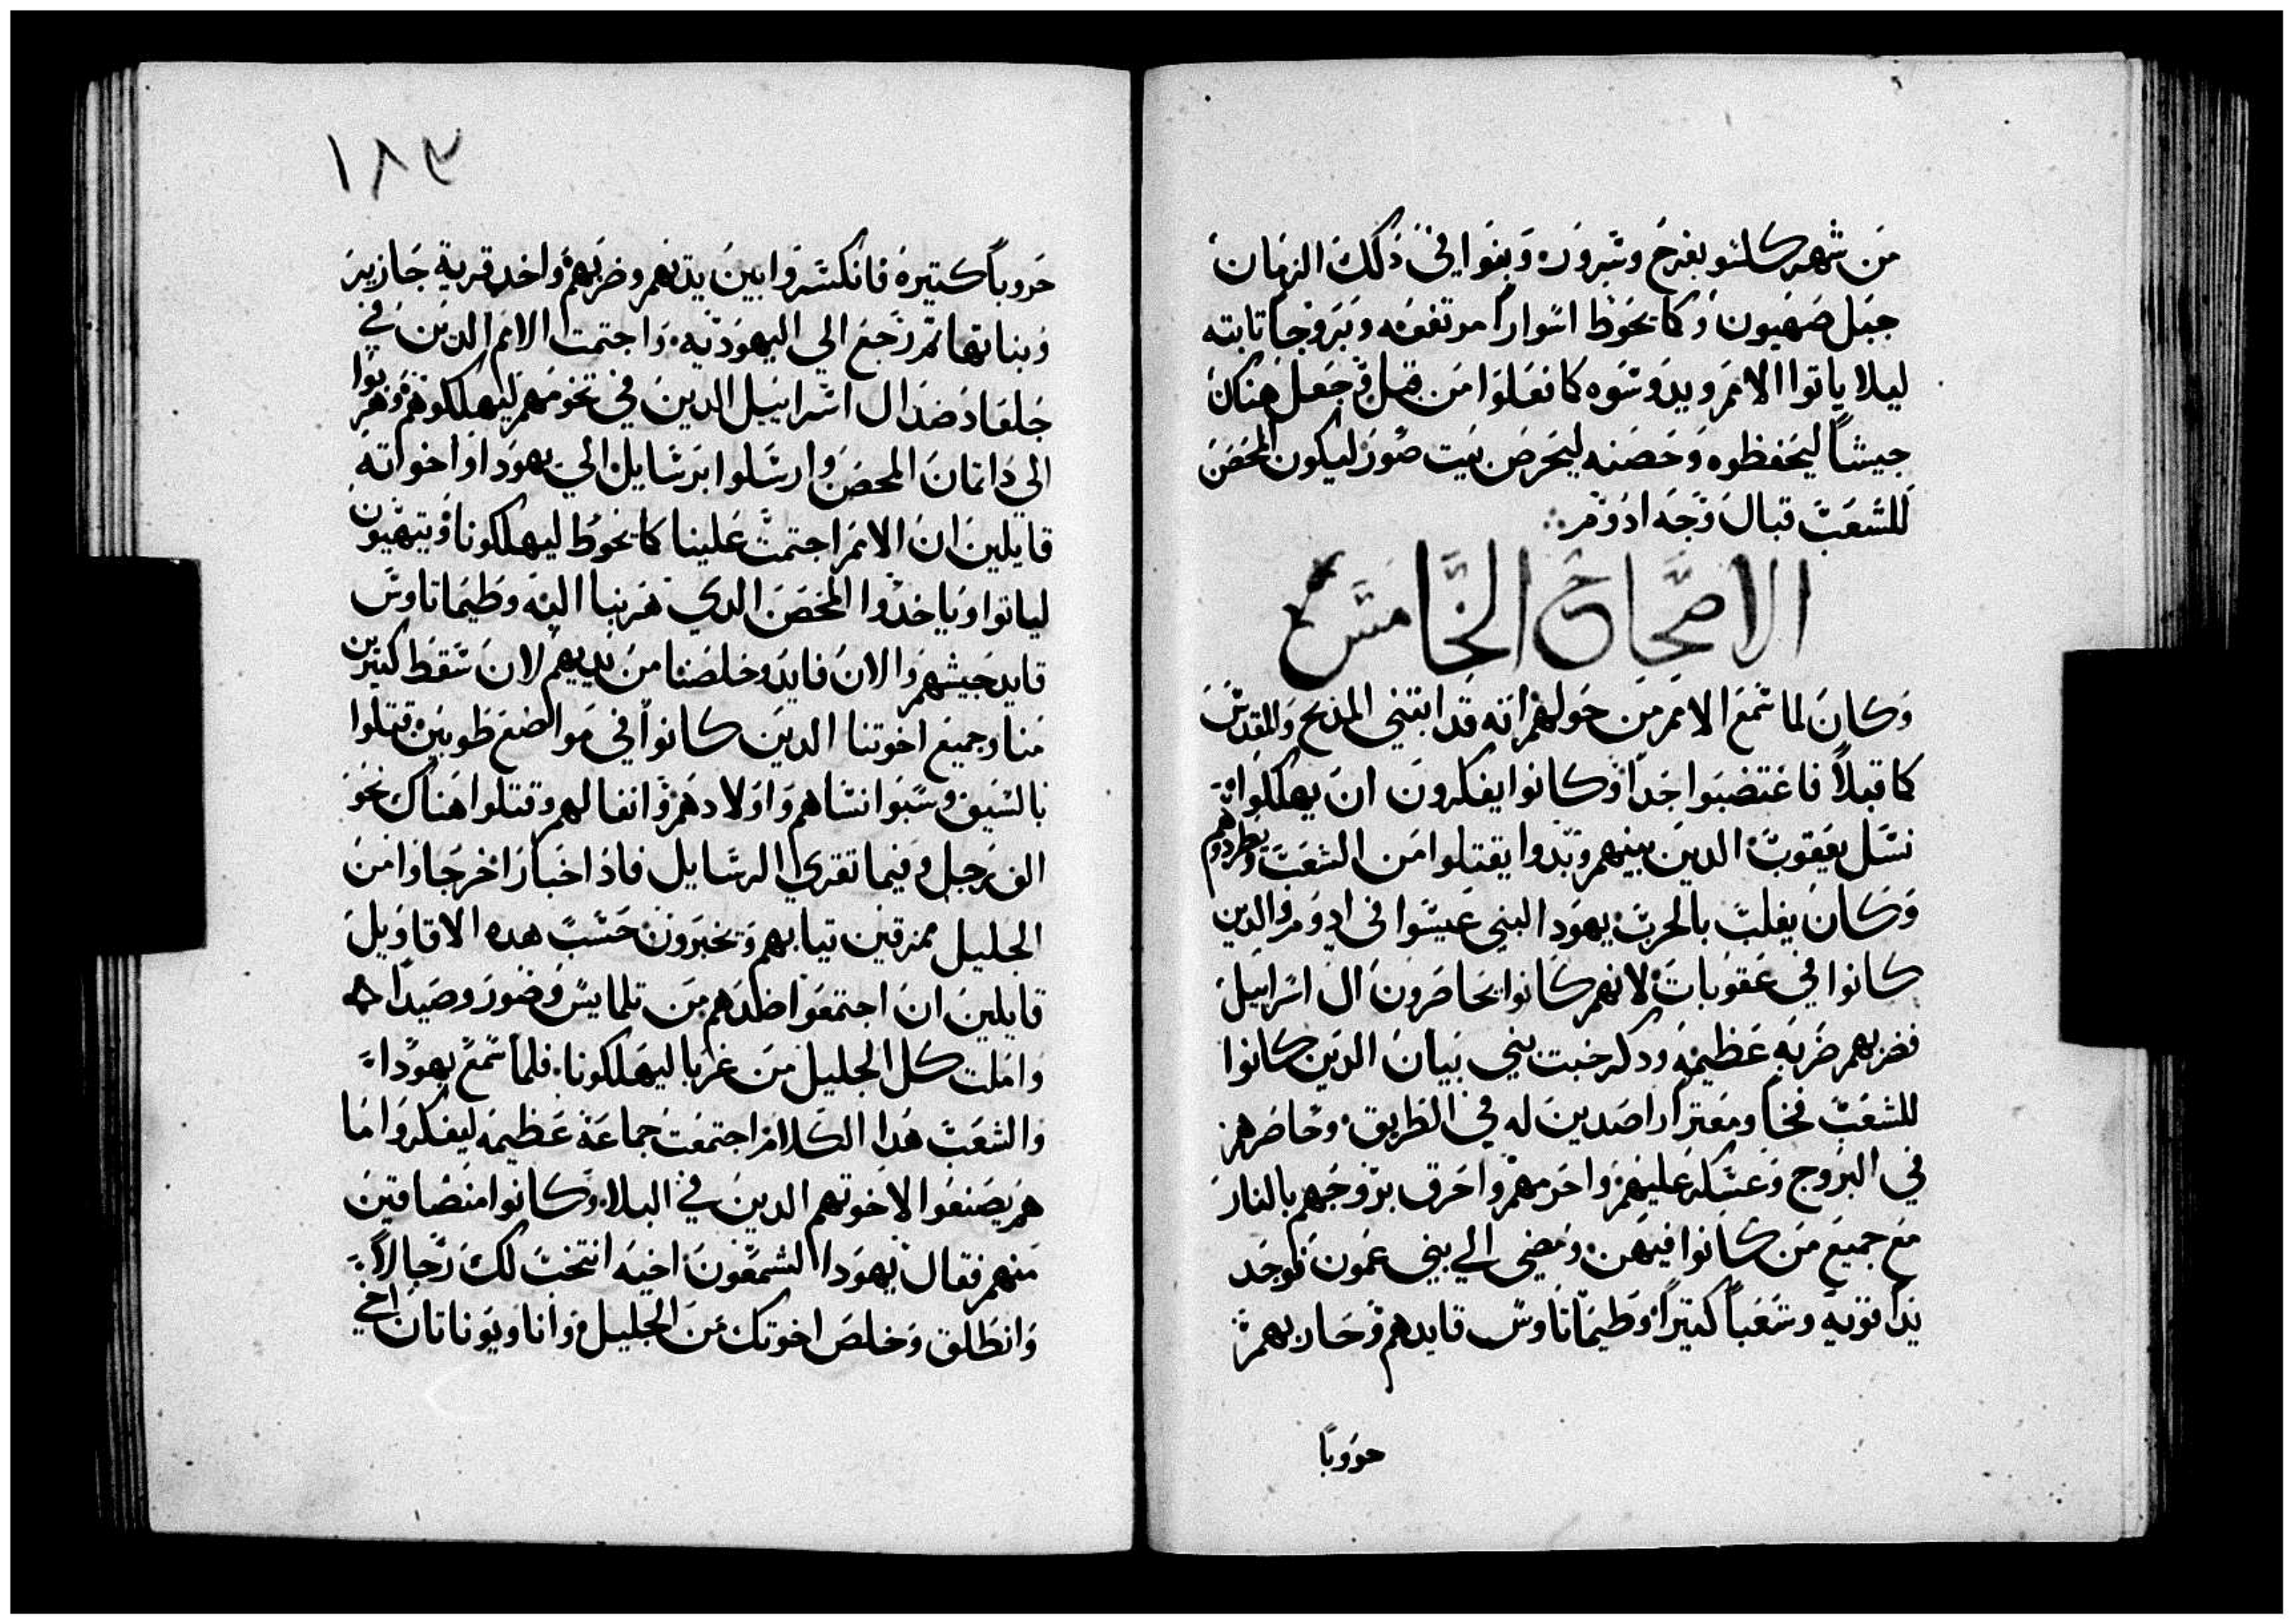 من شهر كسلو بفرح وسرور، وبنوا في ذلك الزمان
جبل صهيون وكانحوط اسواراً مرتفعه وبروجاً تابته
ليلا ياتوا الامم ويدوسوه كما فعلوا من قبل وجعل هناك
جيشاً ليحفظوه وحصنه ليحرص بيت صور ليكون المحصن
للشعب قبال وجه ادوم
الاصحاح الخامس
وكان لما سمع الامم من حولهم انه قد ابتني المدبح والمقدس
كما قبلاً فاغتضبوا جداً وكانوا يفكرون ان يهلكوا
نسل يعقوب الدين بينهم وبدوا يقتلوا من الشعب ويطردوهم
وكان يغلب بالحرب يهودا لبني عيسوا في ادوم والدين
كانوا في عقوبات لانهم كانوا يحاصرون ال اسراييل
فضربهم ضربه عظيمه ودكر خبت بني بيان الدين كانوا
للشعب فخاً ومعتراً راصدين له في الطريق وحاصرهم
في البروج وعسكر عليهم واحرمهم واحرق بروجهم بالنار
مع جميع من كانوا فيهن ومضي الي بني عمون فوجد
يداً قويه وشعباً كتيراً وطيماتاوس قايدهم وحاربهم
حروباً
١٨٣
حروباً كتيره فانكسروا بين يديهم وضربهم واخد قرية جازير
وبناتها تم رجع الي اليهوديه واجتمت الامم الدين في
جلعاد ضد ال اسراييل الدين في تخومهم ليهلكوهم وهربوا
الي داتمان المحصن وارسلوا برسايل الي يهودا واخواته
قايلين ان الامم اجتمت علينا كانحوط ليهلكونا ويتهيون
لياتوا وياخدوا المحصن الدي هربنا اليه وطيماتاوس
قايد جيشهم والان فايد وخلصنا من يديهم لان سقط كتيرين
منا وجميع اخوتنا الدين كانوا في مواضع طوبين قتلوا
بالسيف وسبوا نساهم واولادهم وانفالهم وقتلوا هناك نحو
الف رجل وفيما تقري الرسايل فاد اخبار اخر جاوا من
الجليل ممزقين تيابهم ويخبرون حسب هده الاقاويل
قايلين ان اجتمعوا ضدهم من تلمايس وصور وصيدا
وامليت كل الجليل من غربا ليهلكونا فلما سمع يهودا
والشعب هدا الكلام اجتمعت جماعة عظيمه ليفكروا ما
هم يصنعوا لاخوتهم الدين في البلا وكانوا منضاقين
منهم فقال يهودا لشمعون اخيه انتخب لك رجالاً
وانطلق وخلص اخوتك من الجليل وانا ويوناتان اخي